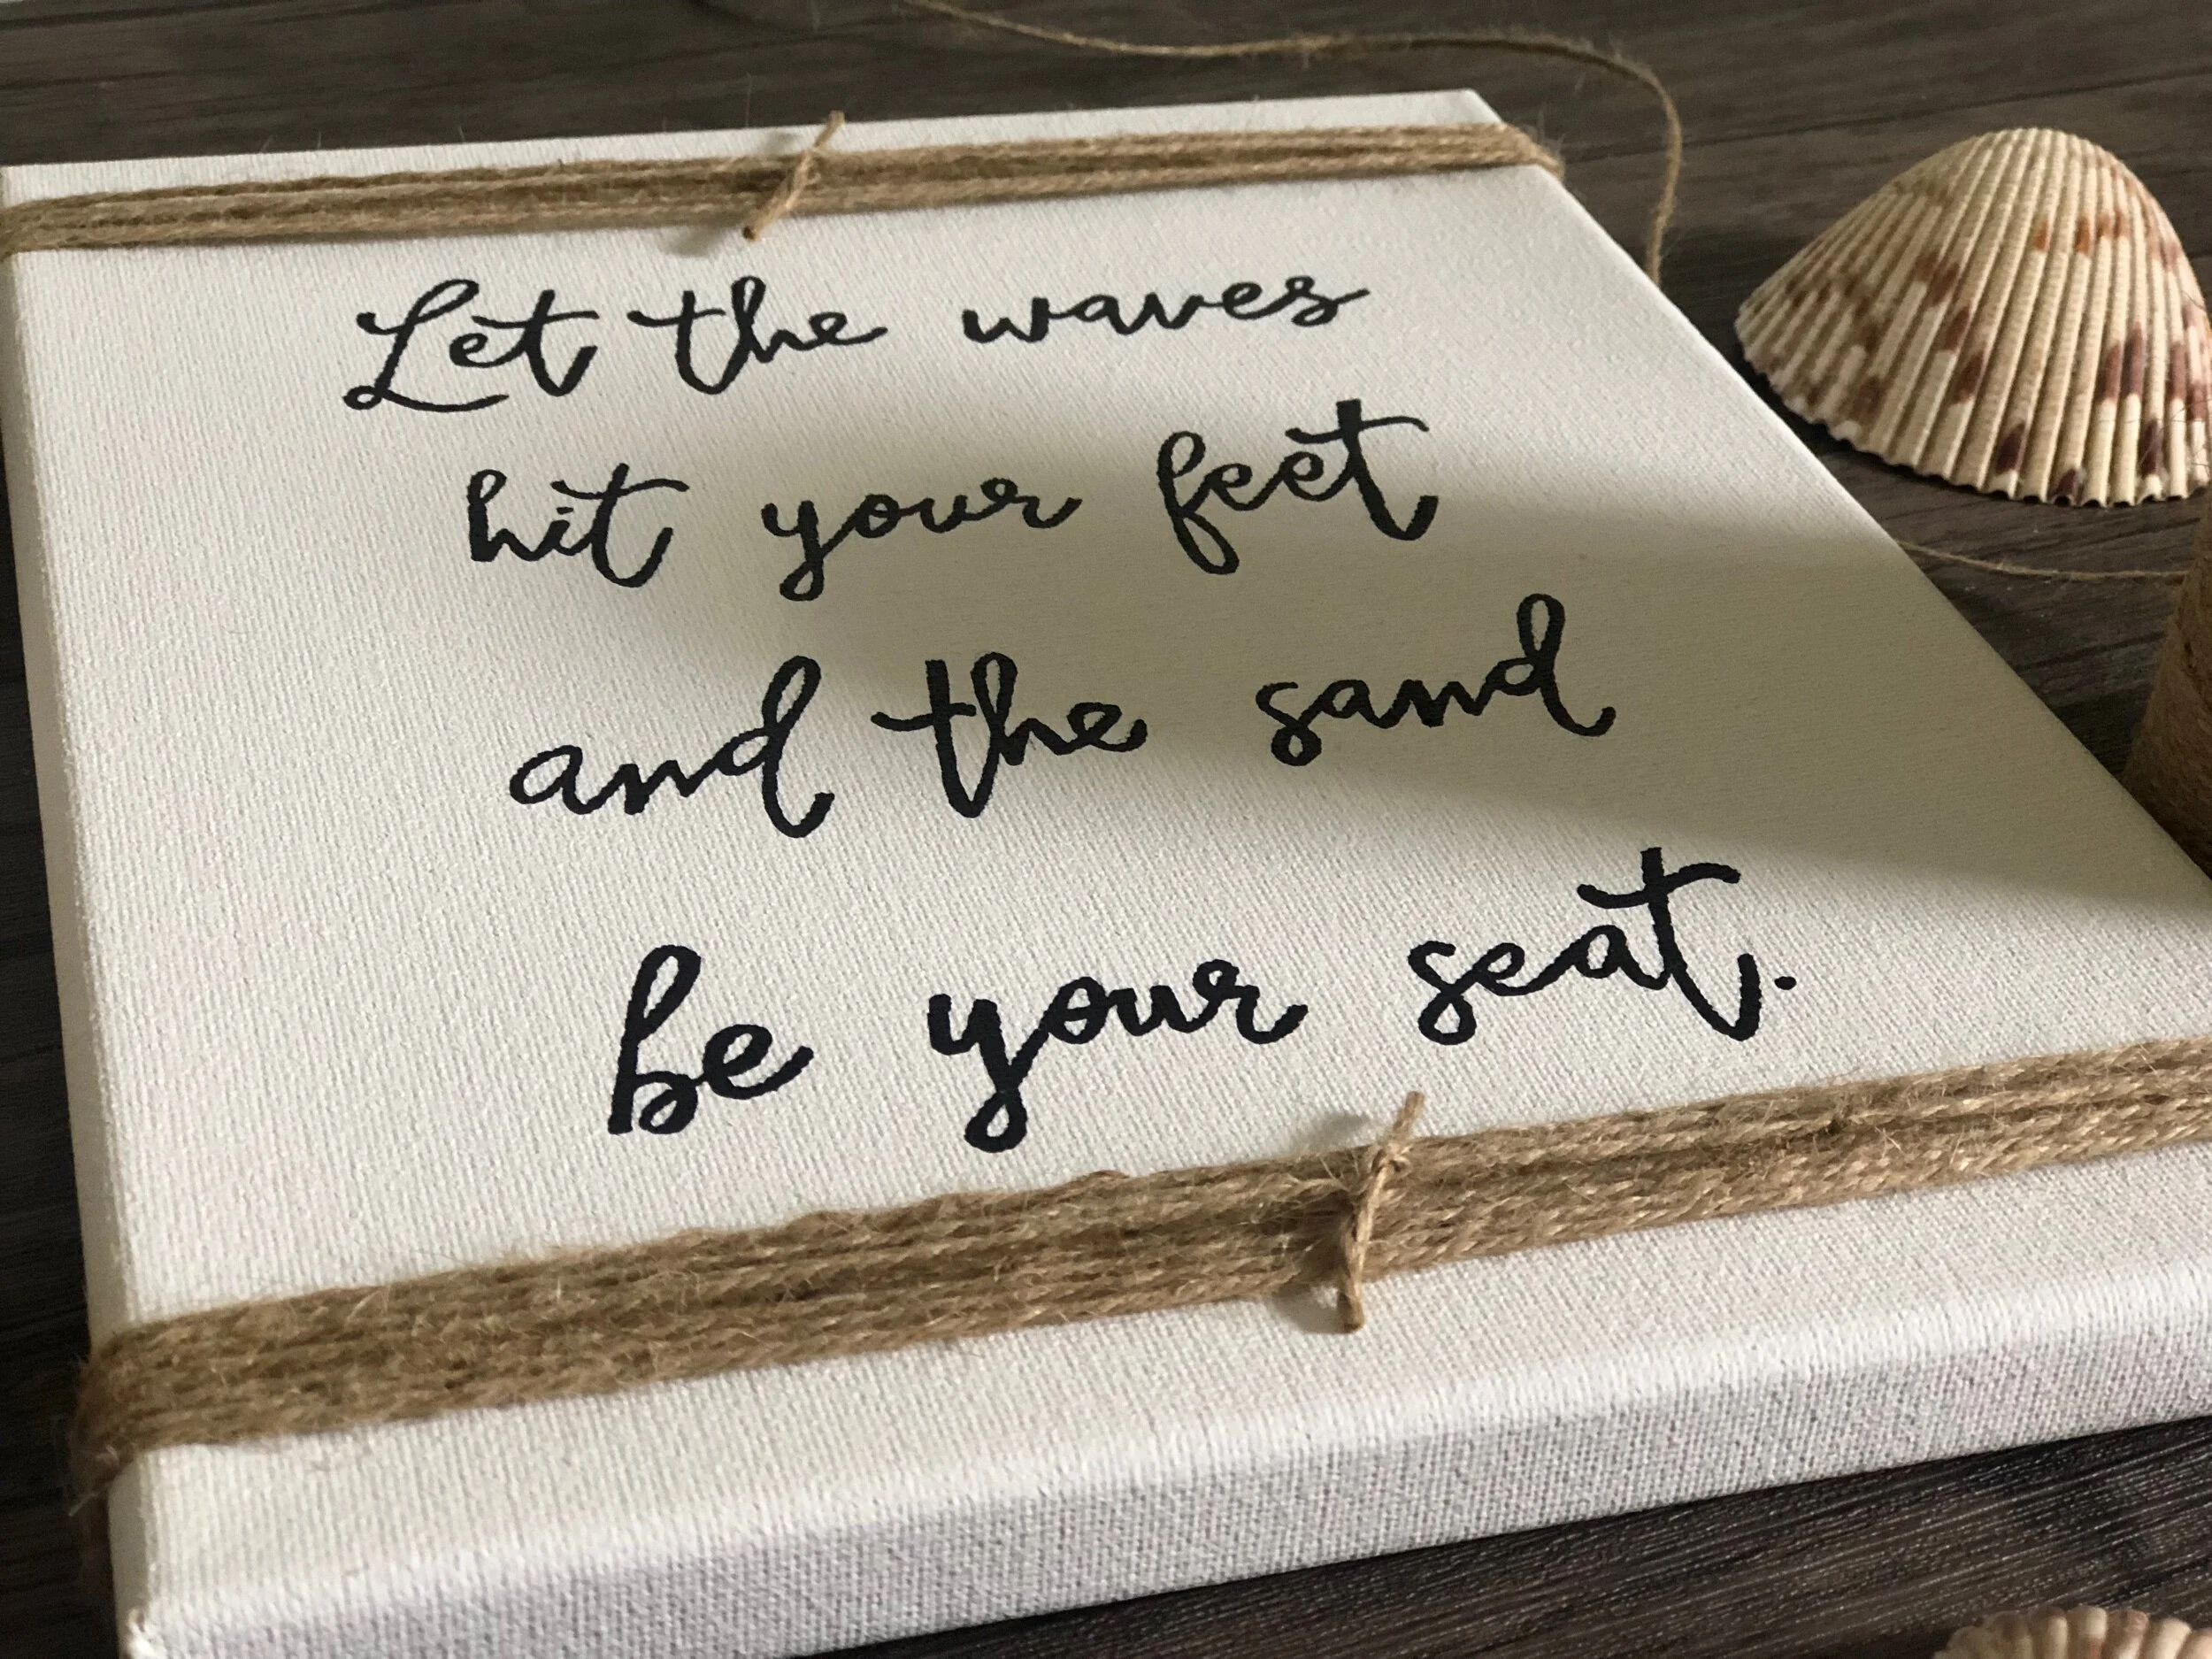 Let the waves
hit your feet
and the sand
be your seat.